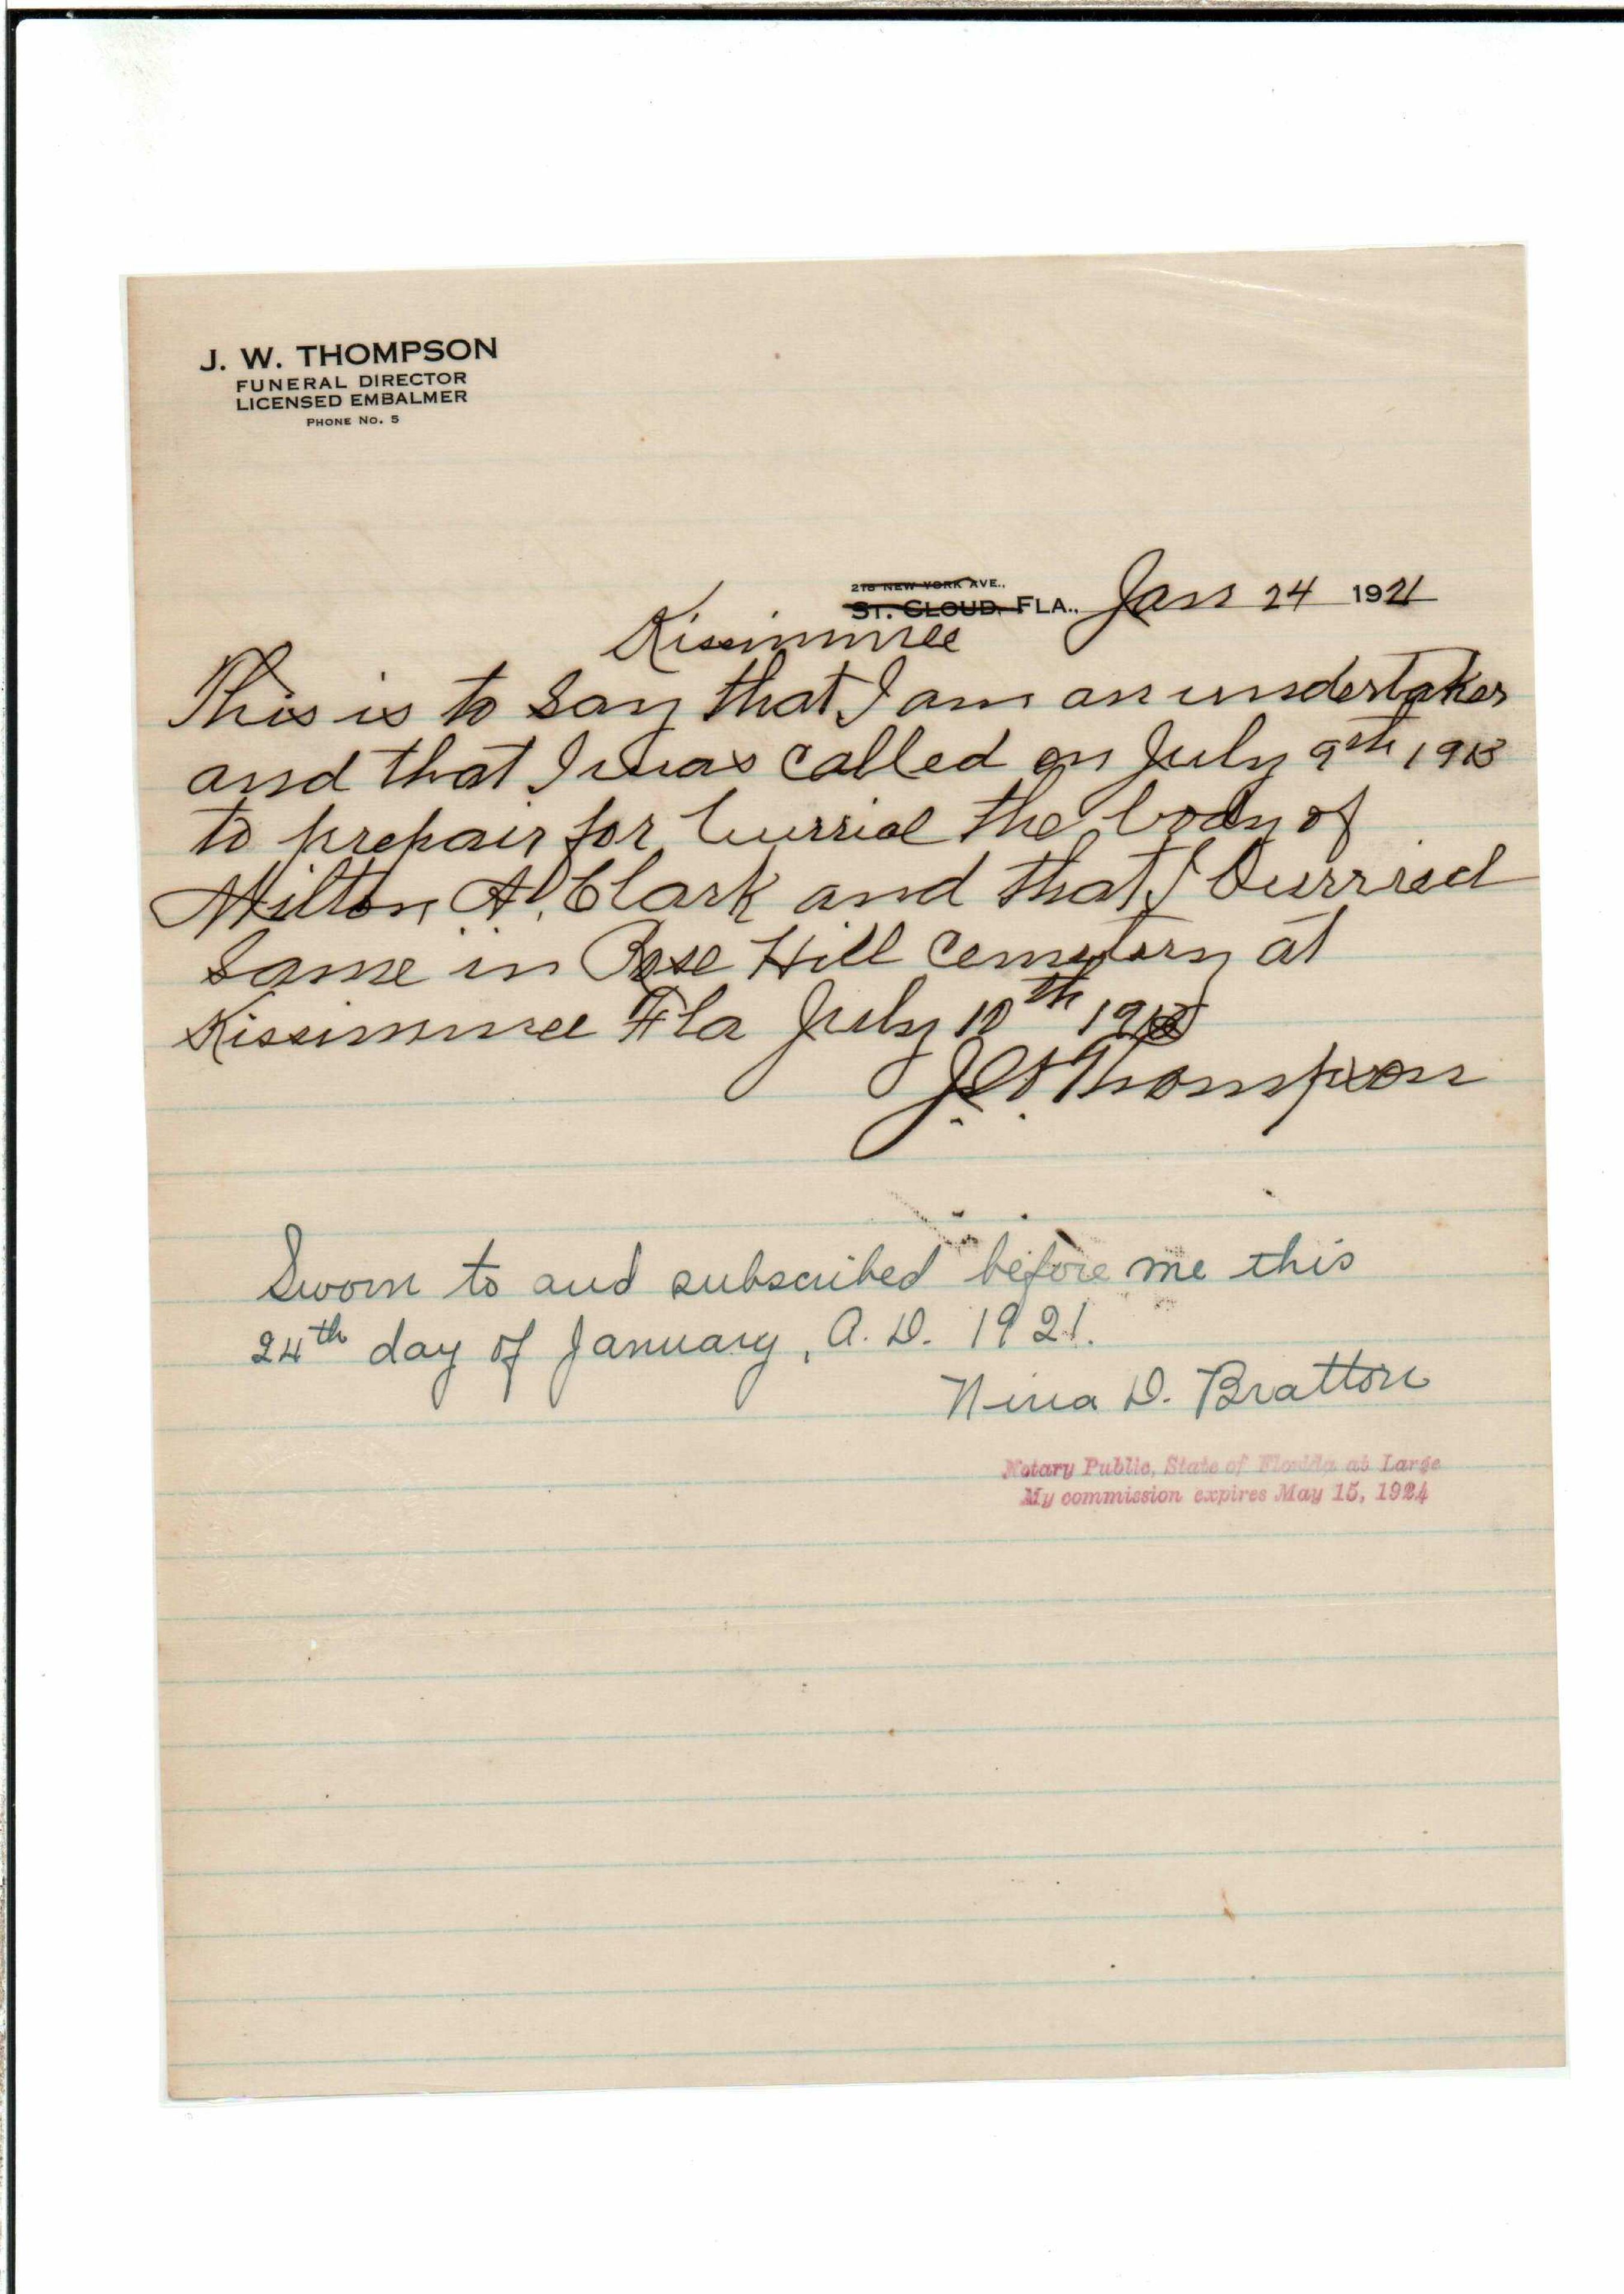 J. W. THOMPSON
FUNERAL DIRECTOR
LICENSED EMBALMER
PHONE No. 5
NEW YORK AVE.,
ST. CLOUD, FLA., Jan 24 1921
Kissimmee
This is to say that I am an undertaker
and that I was called on July 9th
to prepair for burrial the body of
Milton A. Clark and that I burried
same in Rose Hill cemetery at
Kissimmee Fla July 10th
J.W. Thompson
Sworn to and subscribed before me this
24th day of January, A.D. 1921.
Nina D. Bratton
Notary Public, State of Florida at Large
My commission expires May 15, 1924